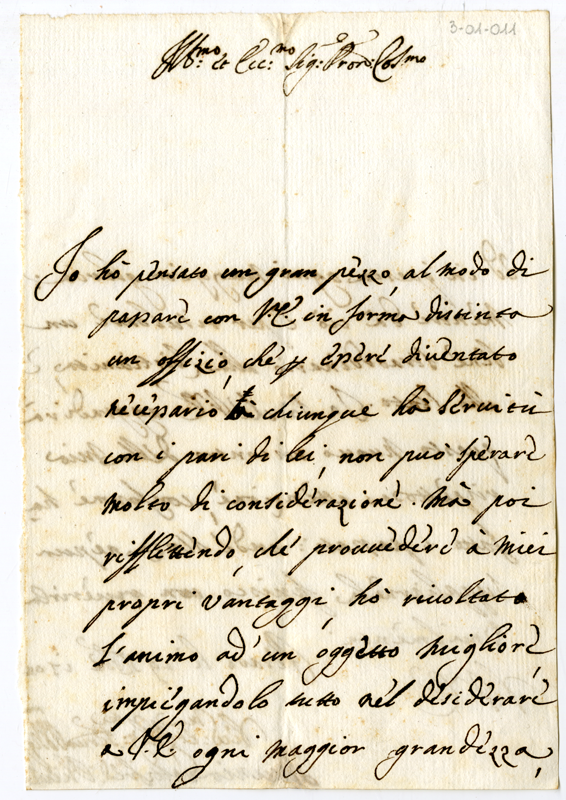 3-01-011
Ill:mo et Ecc:mo Sig:r Pron: Col:mo
Io hò pensato un gran pezzo, al modo di
passare con V.E. in forma distinta
un offizio, che p essere diventato
necessario à chiunque hà servitù
con i pari di lei, non può sperare
molto di considerazione. Mà poi
rifflettendo, che provvedere à miei
propri vantaggi, hò rivoltato
l'animo ad' un oggetto migliore,
impiegandolo tutto nel desiderare
a V.E. ogni maggior grandezza,